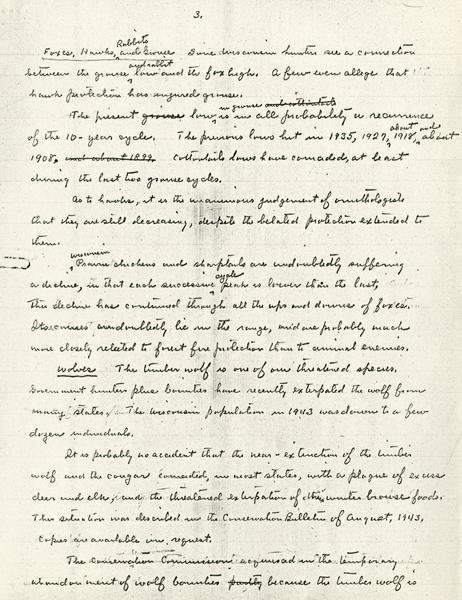 3.
Foxes, Hawks, Rabbits and Grouse Some Wisconsin hunters see a connection
between the grouse and rabbit low and the fox high. A few even allege that
hawk protection has injured grouse.
The present grouse low in grouse and cottontails is in all probability a recurrence
of the 10-year cycle. The previous lows hit in 1935, 1927, about 1918, and about
1908, and about 1899. Cottontails lows have coincided, at least
during the last two grouse cycles.
As to hawks, it is the unanimous judgement of ornithologists
that they are still decreasing, despite the belated protection extended to
them.
Wisconsin Prairie chickens and sharptails are undoubtedly suffering
a decline, in that each successive cycle peak is lower than the last,
This decline has continued through all the ups and downs of foxes.
Its causes undoubtedly lie in the range, and are probably much
more closely related to forest fire protection than to animal enemies.
Wolves The timber wolf is one of our threatened species.
Government hunters plus bounties have recently extirpated the wolf from
many states. The Wisconsin population in 1943 was down to a few
dozen individuals.
It is probably no accident that the near-extinction of the timber
wolf and the cougar coincided, in most states, with a plague of excess
deer and elk, and the threatened extirpation of their winter browse foods.
This situation was described in the Conservation Bulletin of August, 1943.
Copies are available on request.
The Conservation Commission acquiesced in the temporary
abandonment of wolf bounties partly because the timber wolf is